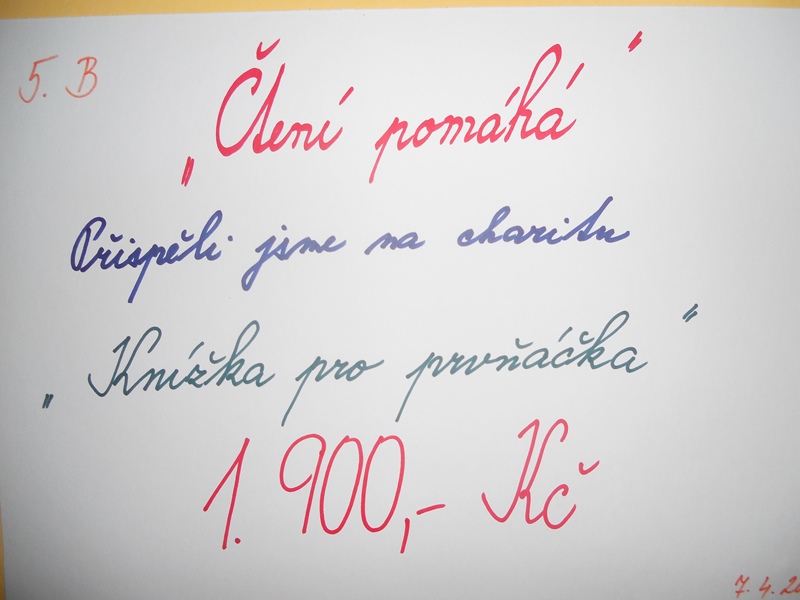 5. B
„Čtení pomáhá"
Přispěli jsme na charitu
„Knížka pro prvňáčka"
1.900,- Kč
7.4.20